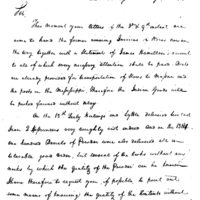 Sir,
This moment your letters of the 3d & 9th instant are
come to hand the former covering Invoices & River
the way together with a Statement of James Hamilton's account
to all of which every necessary attention shall be paid. Boats
are already provided for transportation of Stores to
posts on the Mississippi, therefore the Indian Goods will
be pushed forward without delay.
On the 13th July Hastings and
Sloan & Hopkinson very weighty
one hundred Barrels of Powder were also delivered all in
tolerable good order, but several of the Casks without any
marks by which the quality of the Powder can be known
I have therefore to request you if possible to point out
some means of knowing the quality of the Contents without